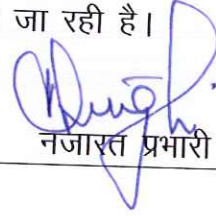 जा रही है।
नजारत प्रभारी